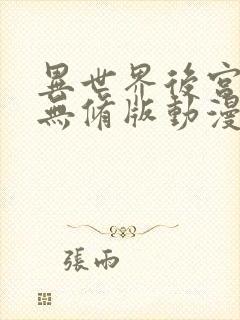 異世界後宮
無脩版動漫
張雨